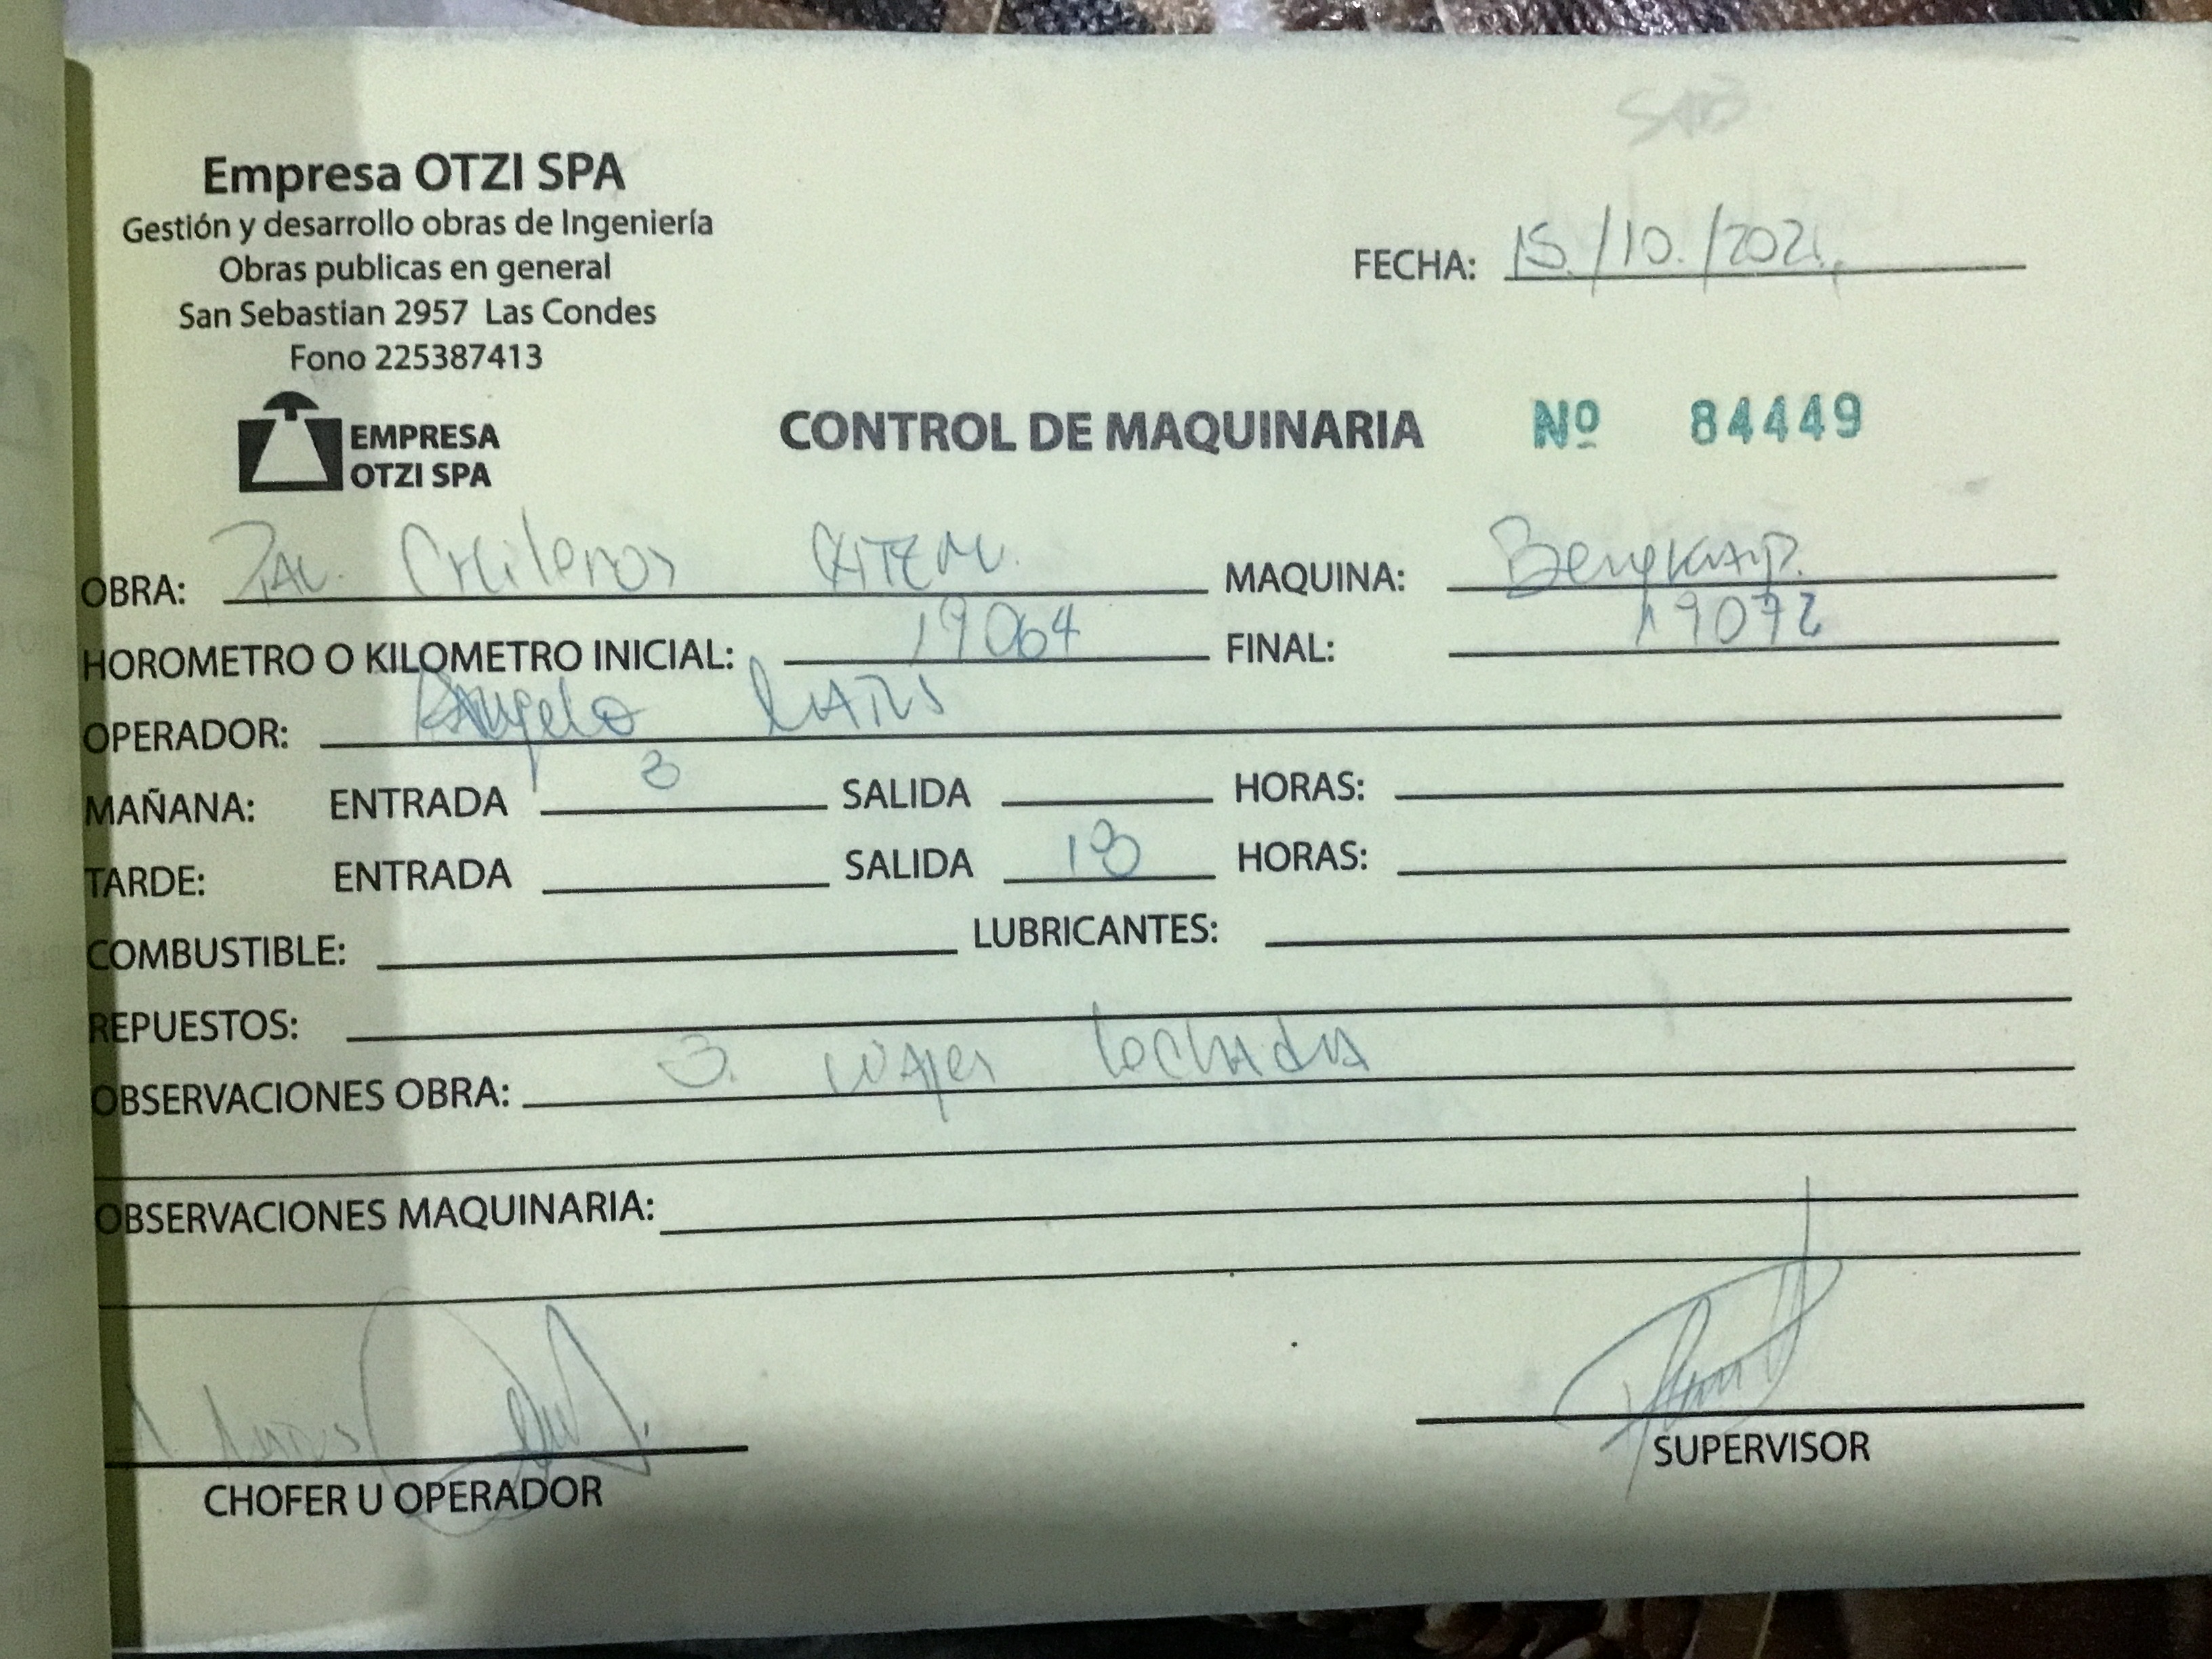 SAB
Empresa OTZI SPA
Gestión y desarrollo obras de Ingeniería
Obras publicas en general
San Sebastian 2957 Las Condes
Fono 225387413
FECHA: 15./10./2021
EMPRESA
OTZI SPA
CONTROL DE MAQUINARIA Nº 84449
OBRA: MAQUINA:
HOROMETRO O KILOMETRO INICIAL: 19064 FINAL: 19072
OPERADOR: Angelo
MAÑANA: ENTRADA 8 SALIDA HORAS:
TARDE: ENTRADA SALIDA 18 HORAS:
COMBUSTIBLE: LUBRICANTES:
REPUESTOS:
OBSERVACIONES OBRA: 3. viajes lechada
OBSERVACIONES MAQUINARIA:
CHOFER U OPERADOR
SUPERVISOR